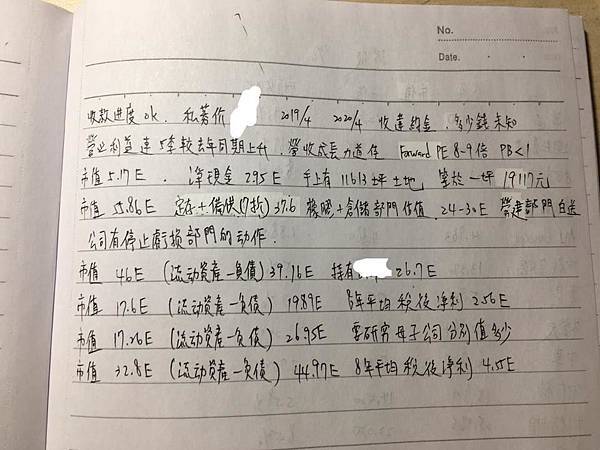 No.
Date.
收款進度 ok. 私募价 2019/4 2020/4 收違約金, 多少錢未知
營业利益連5季較去年同期上升, 營收成長力道佳 Forward PE 8-9倍 PB<1
市值 5.17E. 淨現金 2.95E 手上有 11613坪土地 等於一坪 19117元
市值 55.86E 定存+債快(7折) 37.6 橡膠+倉儲部門估值 24-30E 營建部門白送
公司有停止虧损部門的动作.
市值 46E (流动資產-負債) 39.16E 持有 26.7E
市值 17.6E (流动資產-負債) 19.89E 8年平均稅後淨利 2.56E
市值 17.26E (流动資產-負債) 26.95E 要研究母子公司分別值多少
市值 32.8E (流动資產-負債) 44.97E 8年平均稅後淨利 4.5E